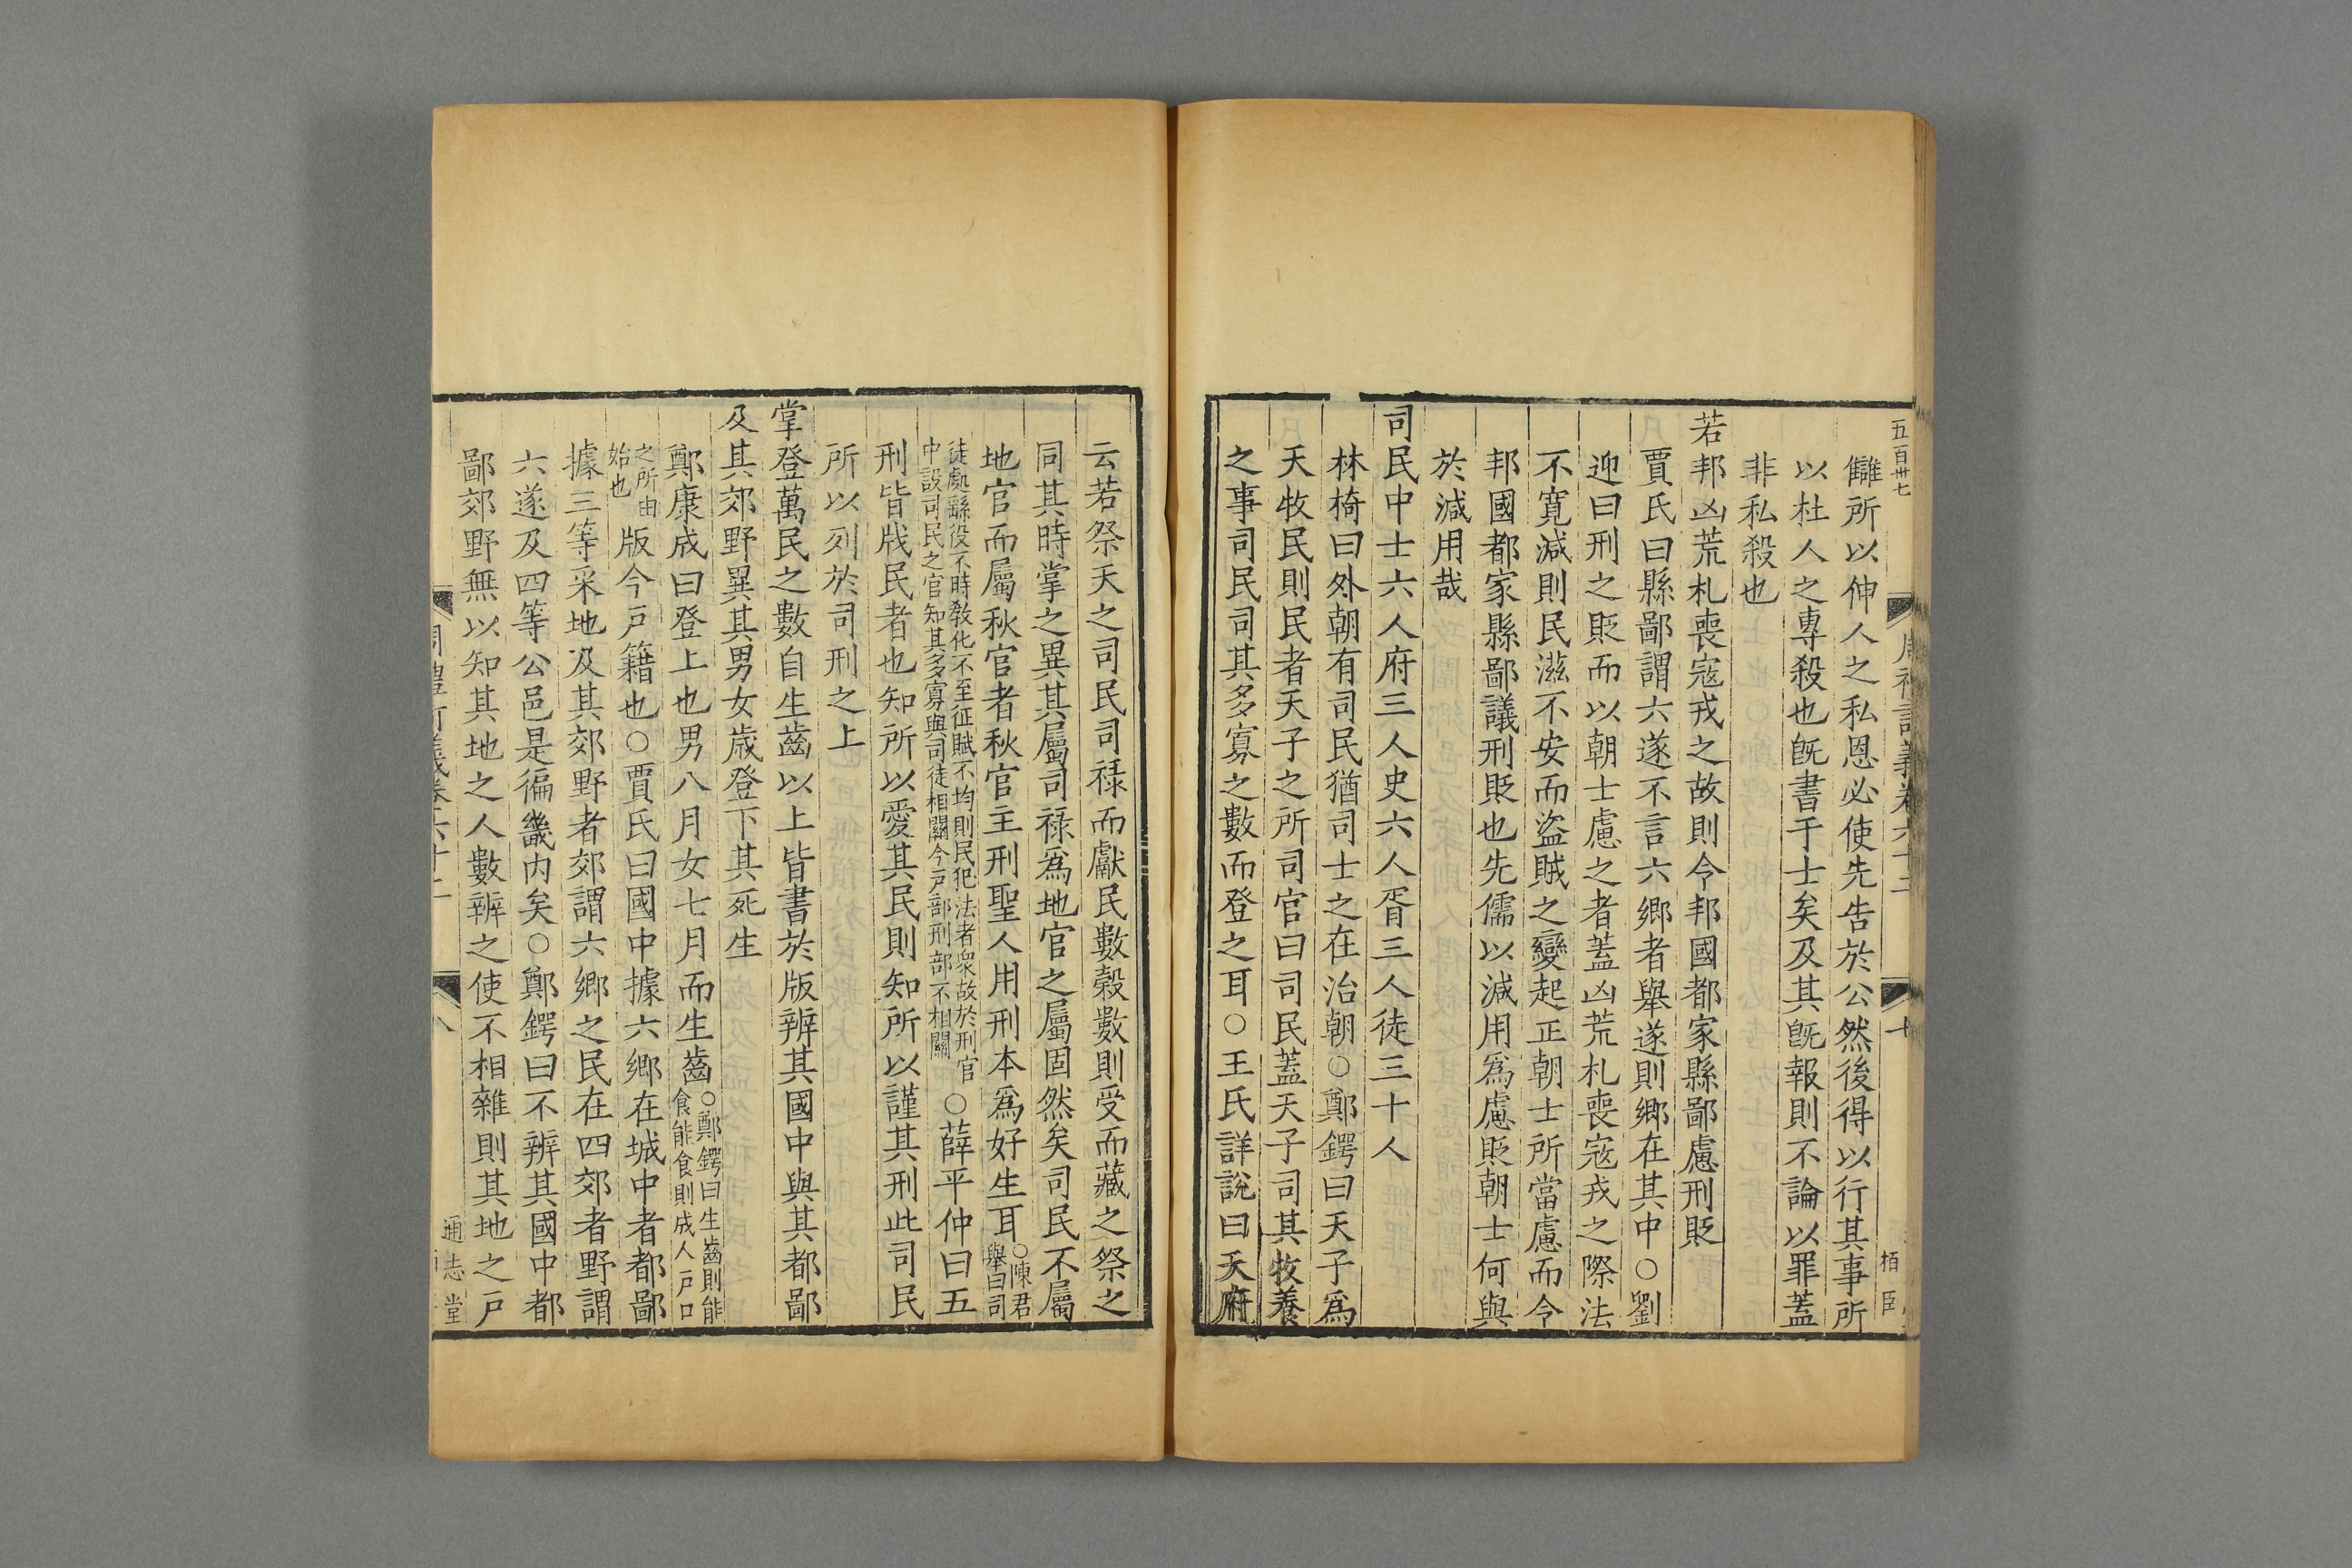 五百卅七
周禮訂義卷六十二
七
栢臣
讎所以伸人之私恩必使先告於公然後得以行其事所
以杜人之專殺也旣書于士矣及其旣報則不論以罪蓋
非私殺也
若邦凶荒札喪寇戎之故則令邦國都家縣鄙慮刑貶
賈氏曰縣鄙謂六遂不言六鄉者舉遂則鄉在其中○劉
迎曰刑之貶而以朝士慮之者蓋凶荒札喪寇戎之際法
不寛減則民滋不安而盜賊之變起正朝士所當慮而令
邦國都家縣鄙議刑貶也先儒以減用爲慮貶朝士何與
於減用哉
司民中士六人府三人史六人胥三人徒三十人
林椅曰外朝有司民猶司士之在治朝○鄭鍔曰天子爲
天牧民則民者天子之所司官曰司民蓋天子司其牧養
之事司民司其多寡之數而登之耳○王氏詳說曰天府
云若祭天之司民司祿而獻民數榖數則受而藏之祭之
同其時掌之異其屬司祿爲地官之屬固然矣司民不屬
地官而屬秋官者秋官主刑聖人用刑本爲好生耳○陳君舉曰司
徒處繇役不時敎化不至征賦不均則民犯法者衆故於刑官中設司民之官知其多寡與司徒相關今戸部刑部不相關○薛平仲曰五
刑皆戕民者也知所以愛其民則知所以謹其刑此司民
所以列於司刑之上
掌登萬民之數自生齒以上皆書於版辨其國中與其都鄙
及其郊野異其男女歲登下其死生
鄭康成曰登上也男八月女七月而生齒○鄭鍔曰生齒則能食能食則成人戸口
之所由始也版今戸籍也○賈氏曰國中據六鄉在城中者都鄙
據三等采地及其郊野者郊謂六鄉之民在四郊者野謂
六遂及四等公邑是徧畿内矣○鄭鍔曰不辨其國中都
鄙郊野無以知其地之人數辨之使不相雜則其地之戸
周禮訂義卷六十二
八
通志堂